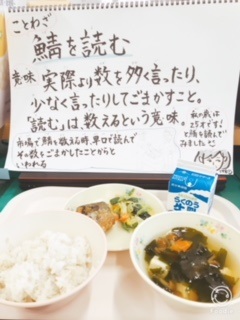 ことわざ
鯖を読む
意味 実際より数を多く言ったり、
少なく言ったりしてごまかすこと。
「読む」は、数えるという意味。
市場で鯖を数える時、早口で読んで
その数をごまかしたことからと
いわれる
私の歳は
25才です!
と鯖を読んで
みました
らくのう